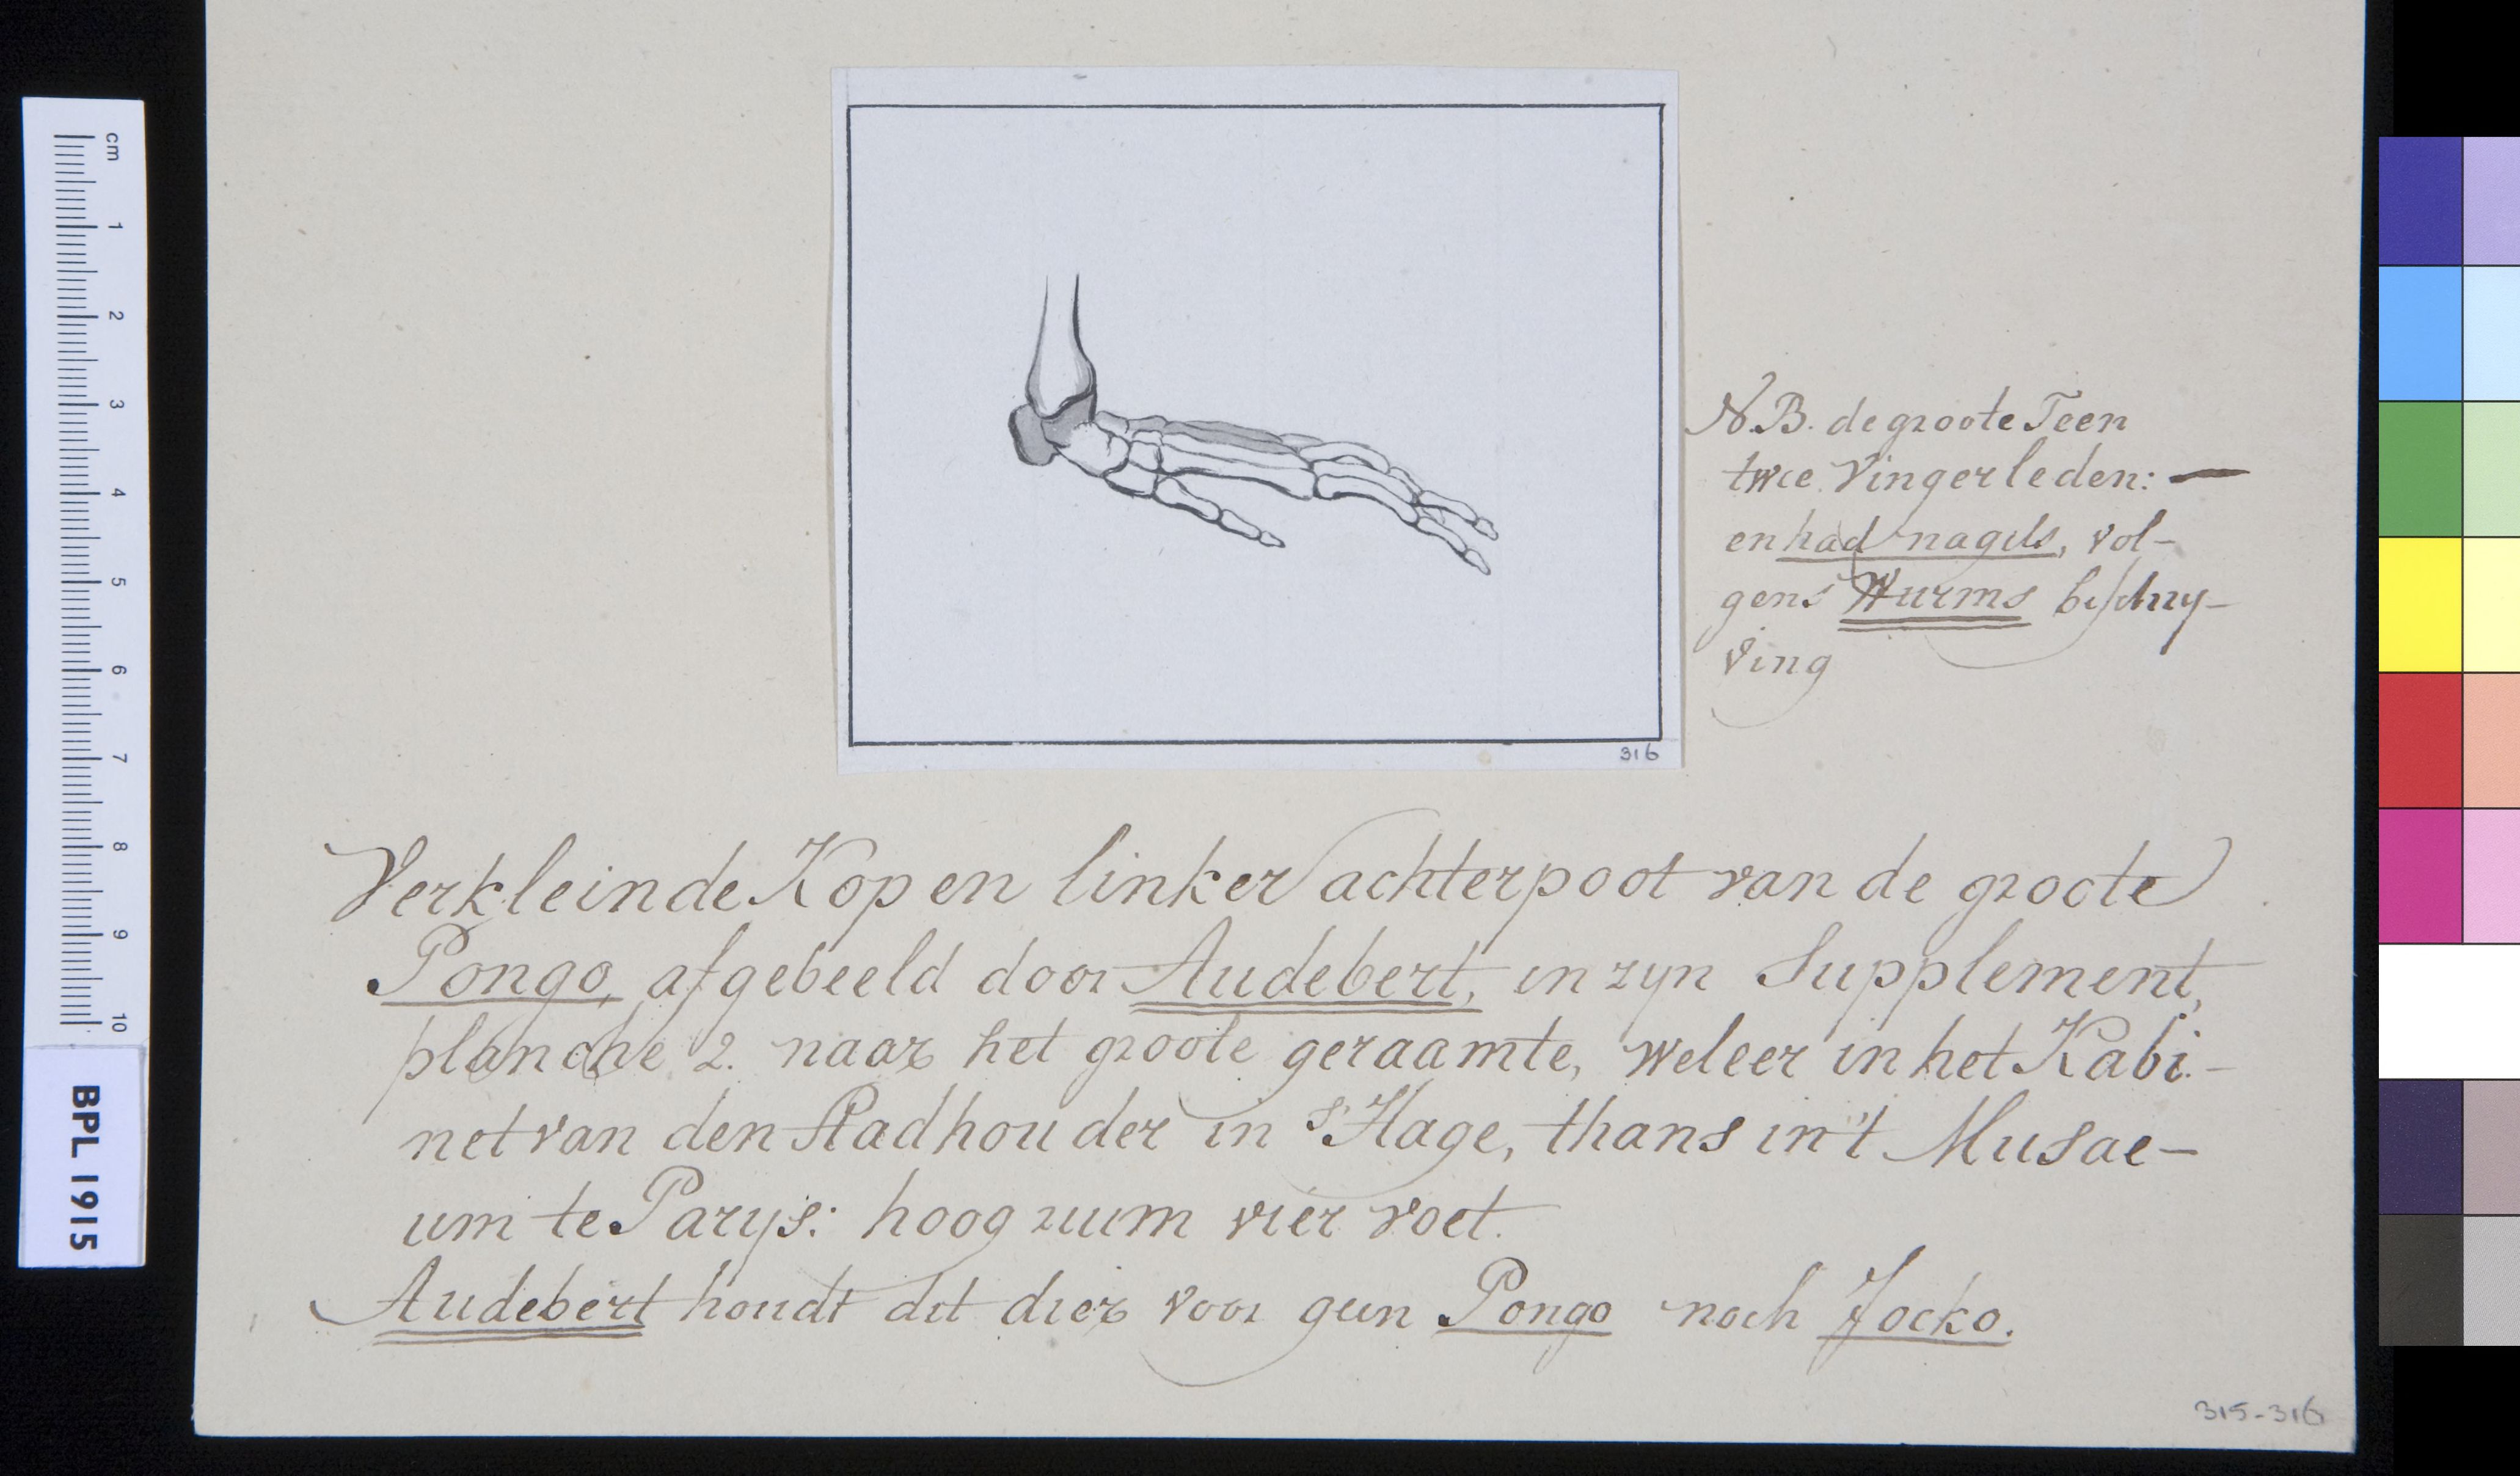 cm
1
2
3
4
5
6
7
8
9
10
BPL 1915
316
N.B. de groote Teen
twee Vingerleden: —
en had nagels, vol-
gens Wurms beschry-
ving
Verkleinde Kop en linker achterpoot van de groote
Pongo, afgebeeld door Audebert, in zyn Supplement,
planche 2. naar het groote geraamte, weleer in het Kabi-
net van den Stadhouder in s'Hage, thans in 't Musae-
um te Parys: hoog ruim vier voet.
Audebert houdt dit dier voor geen Pongo noch Jocko.
315-316